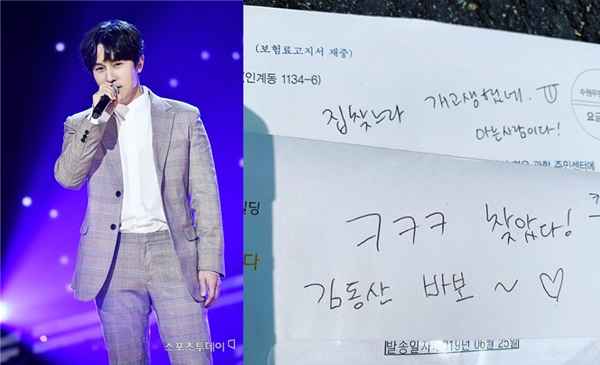 스포츠투데이
(보험료고지서 재중)
(인계동 1134-6)
수원우
요금
집찾느라 개고생했네.
아는사람이다!
관할 주민센터에
빌딩
다
ㅋㅋㅋ 찾았다!
김동산 바보 ~ ♡
발송일자: 2019년 06월 25일